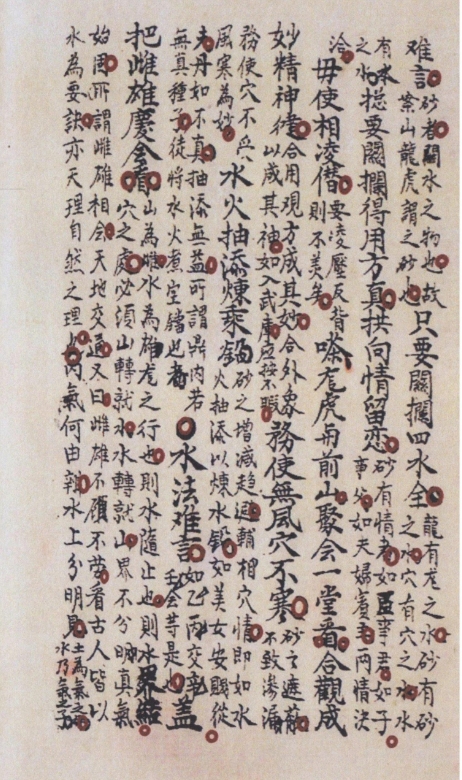 难言
砂者關水之物也故
案山龍虎謂之砂也
只要關攔四水全
龍有龙之水砂有砂
之水穴有穴之水水
有水
之水
揔要關攔得用方真拱向情留恋
砂有情者如臣事君如子
事父如夫婦賓主两情決
洽
毋使相凌僭
要凌壓反背
則不美矣
龙虎前山聚会一堂番合觀成
妙精神徤
合用观方成其妙合外象
以威其神如入武庫应接不暇
務使無風穴不寒
砂之遮蔽
不致滲漏
務使穴不
風寒為妙
水火抽添煉汞鉛
砂之增減趋迴輔相穴情即如水
火抽添以煉水鉛如美女安賜從
夫丹如不真抽添無益所謂鼎内若
無真種子徒將水火煮空鐺也
者
水法难言
如乙丙交
壬会是也
盖
把雌雄慶会看
山為雌水為雄龙之行也則水隨止也則水
穴之處必須山轉就水水轉就山界不分明真氣
界結
始固所謂雌雄相会天地交通又曰雌雄不顧不劳看古人皆以
水為要訣亦天理自然之理也内氣何由辨水上分明見
土為氣之母
水乃氣之子